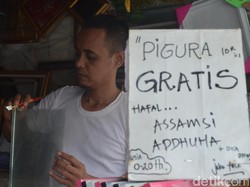 "PIGURA 10R
GRATIS
HAFAL...
ASSAMSI
ADDHUHA
USIA
0-20Th.
detikcom